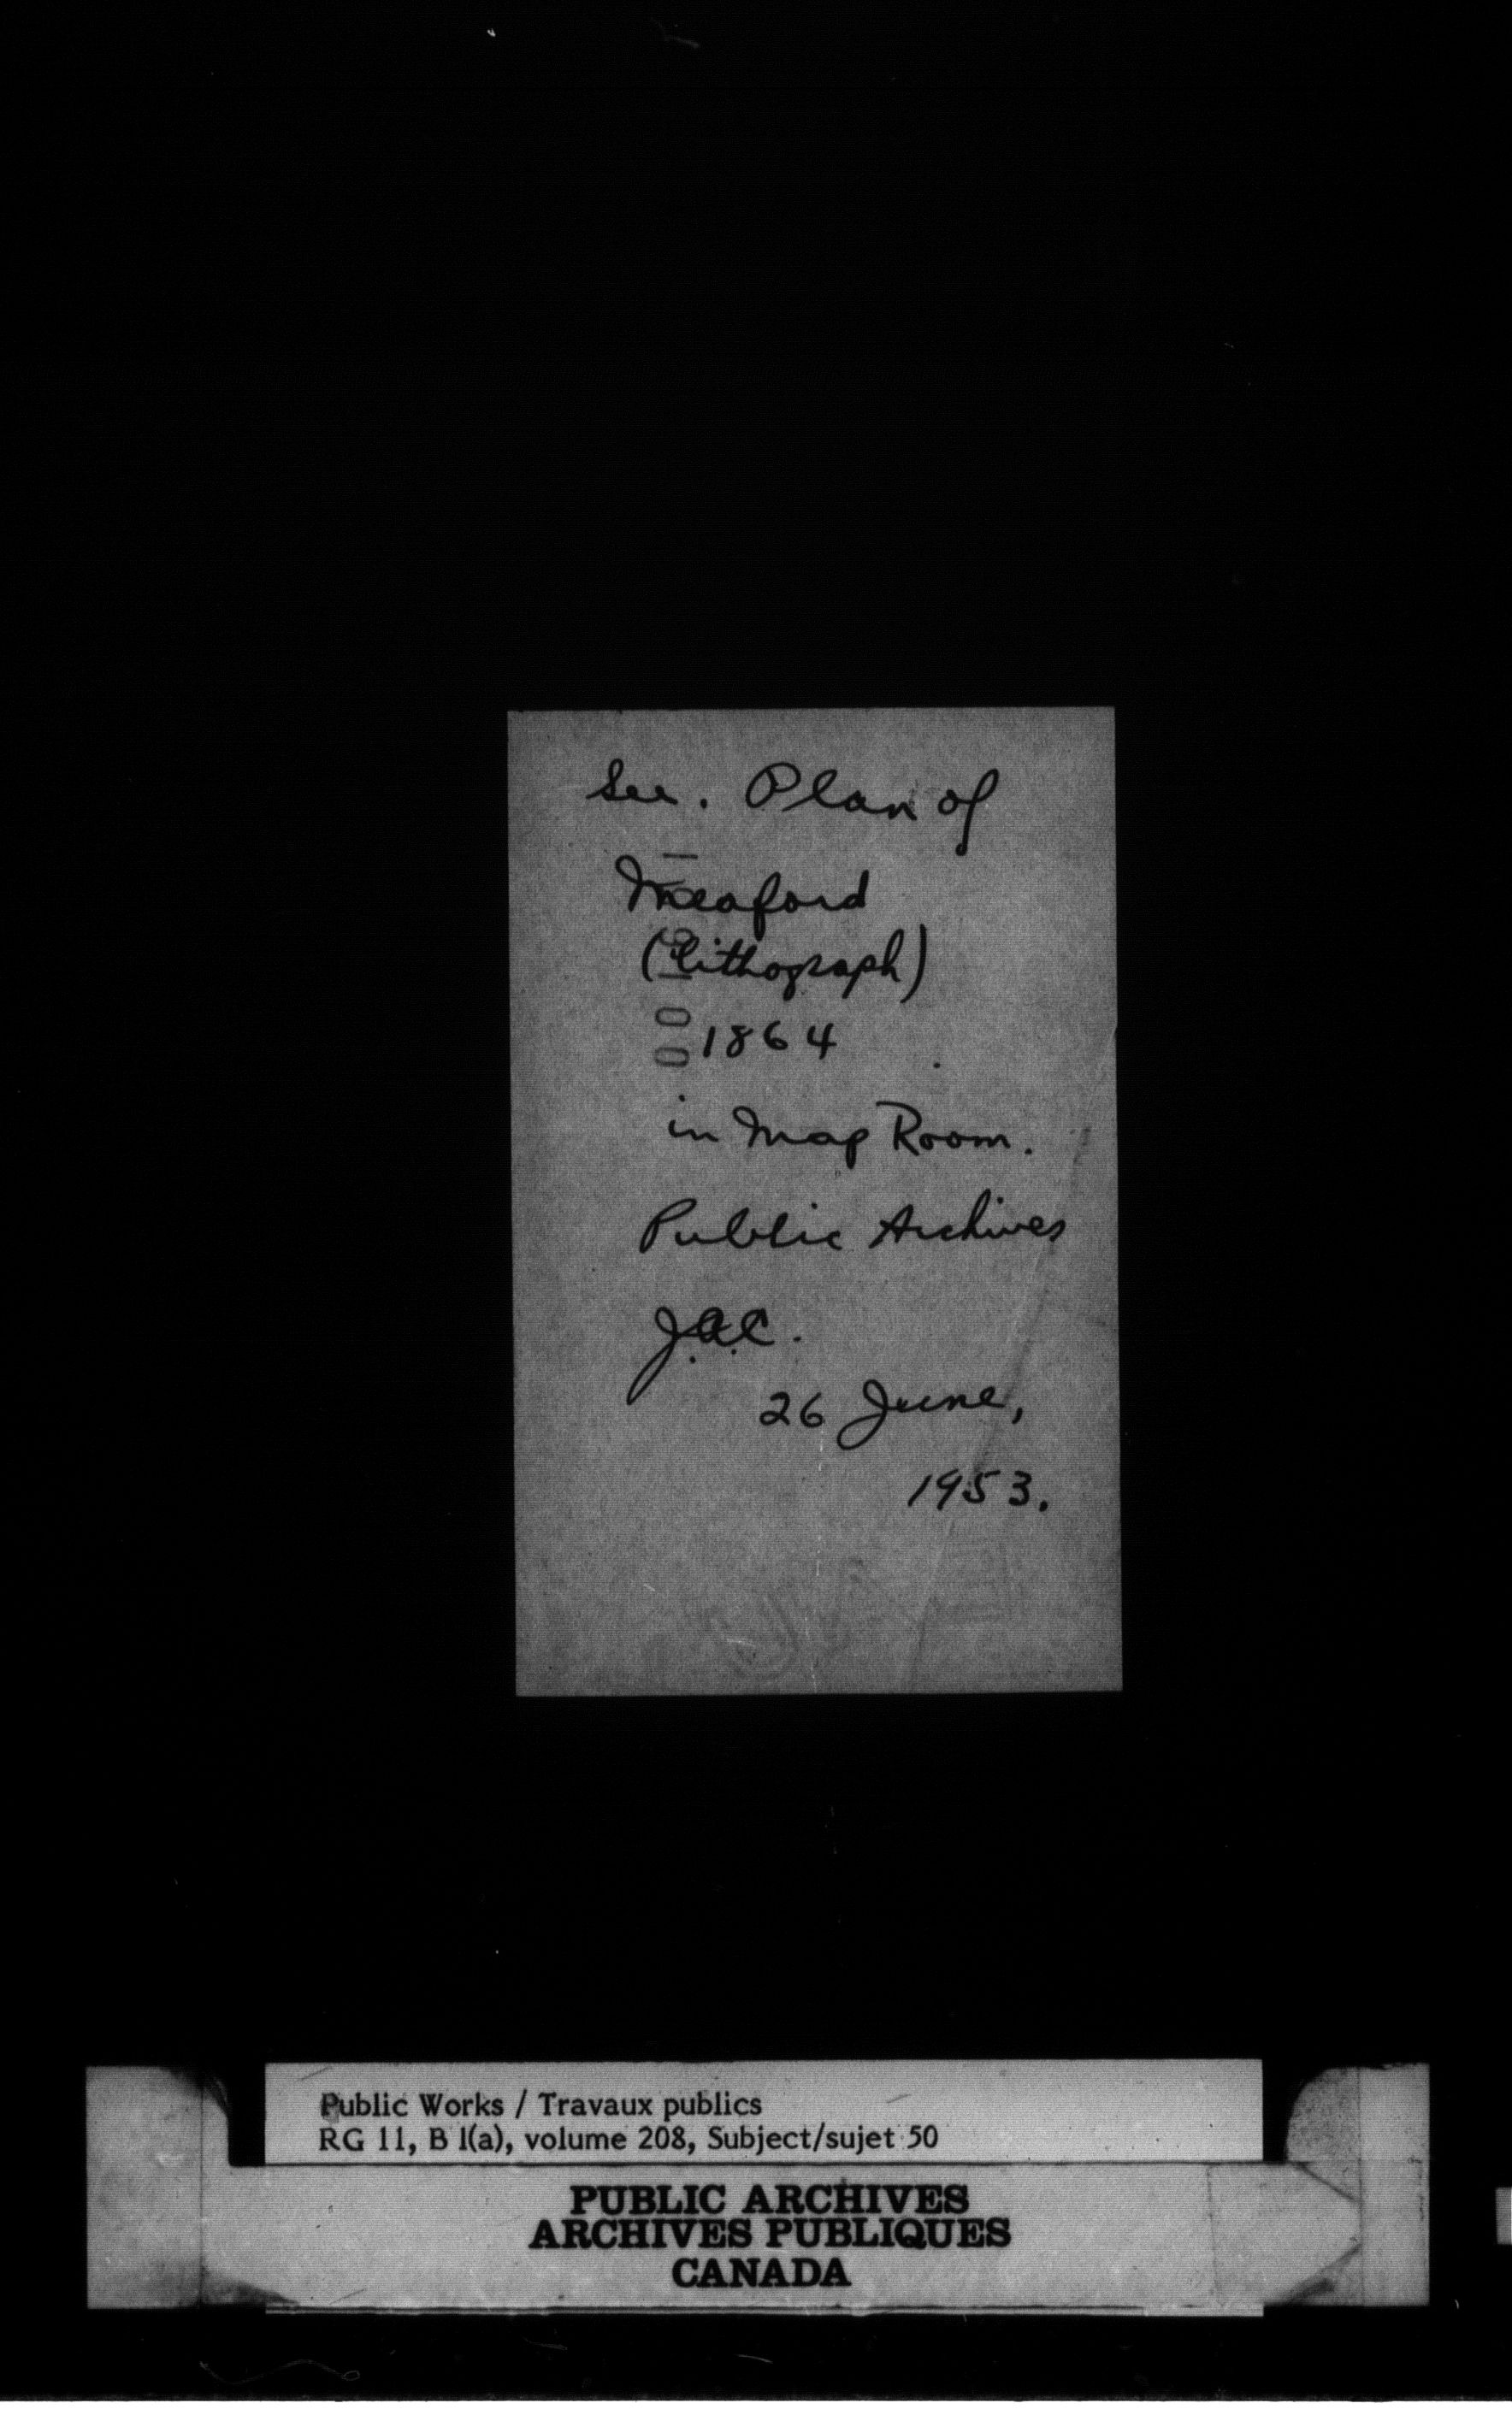 See. Plan of
Meaford
(Lithograph)
1864
in Map Room.
Public Archives
J.A.C.
26 June,
1953.
Public Works / Travaux publics
RG 11, B 1(a), volume 208, Subject/sujet 50
PUBLIC ARCHIVES
ARCHIVES PUBLIQUES
CANADA